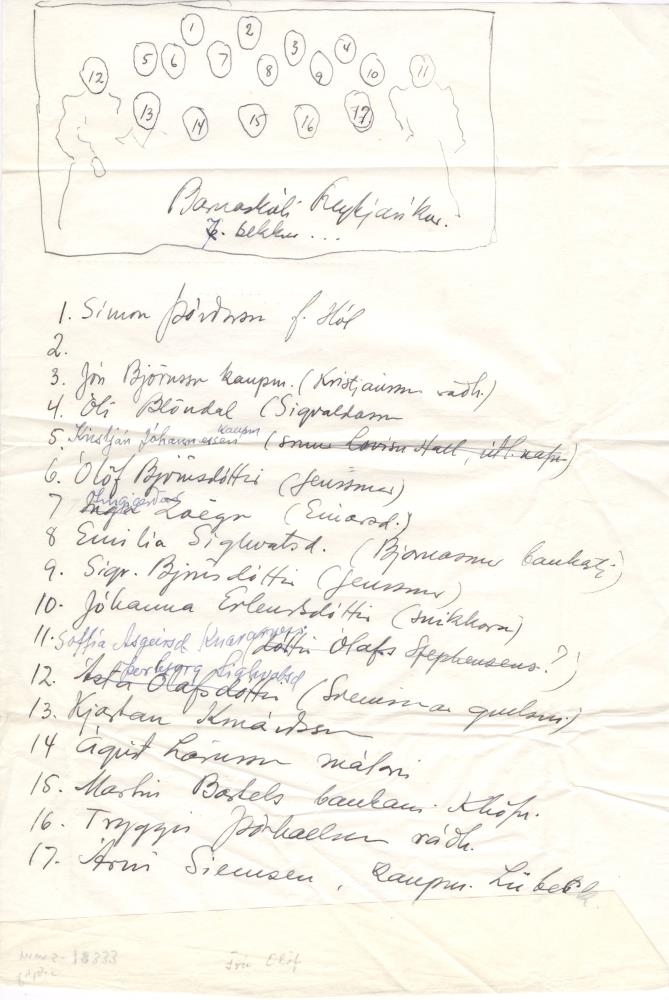 1 2 3 4
5 6 7 8 9 10
12 11
13 14 15 16 17
Barnaskóli Reykjavíkur.
7. bekkur ...
1. Símon Þórðarson f. Hól
2.
3. Jón Björnsson kaupm. (Kristjánssonar ráðh.)
4. Óli Blöndal (Sigvaldason
5. Kristján Jóhannessen kaupm (sonur Lovísu
6. Ólöf Björnsdóttir (Jenssonar)
7 Ingigerður Zoëga (Einarsd.)
8 Emilía Sighvatsd. (Bjarnasonar bankastj)
9. Sigr. Björnsdóttir (Jenssonar)
10. Jóhanna Erlendsdóttir (snikkara)
11. Soffía Ásgeirsd dóttir Ólafs Stephensens?)
12. Ásta Ólafsdóttir Þorbjörg Sighvatsd (Sveinssonar gullsm.)
13. Kjartan Konráðsson
14 Ágúst Lárusson málari
15. Martin Bartels bankam. Khöfn.
16. Tryggvi Þórhallsson ráðh.
17. Árni Siemsen, kaupm. Lübeck.
18333
Frú Ólöf